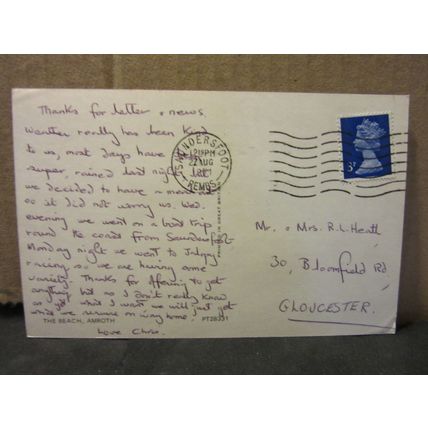 Thanks for letter & news.
Weather really has been kind
to us, most days have
super, rained last night
we decided to have a
so it did not worry us. Wed.
evening we went on a boat trip
round the coast from Saundersfoot
Monday night we went to
racing so we are having some
variety. Thanks for offering to get
anything but as I don't really know
as yet what I want we will just get
what we on way home.
Love Chris.
THE BEACH, AMROTH PT28331
PRINTED IN GREAT BRITAIN
SAUNDERSFOOT
12 15 PM
AUG
PEMBS
Mr. & Mrs. R.L. Heath
30, Bloomfield Rd
GLOUCESTER.